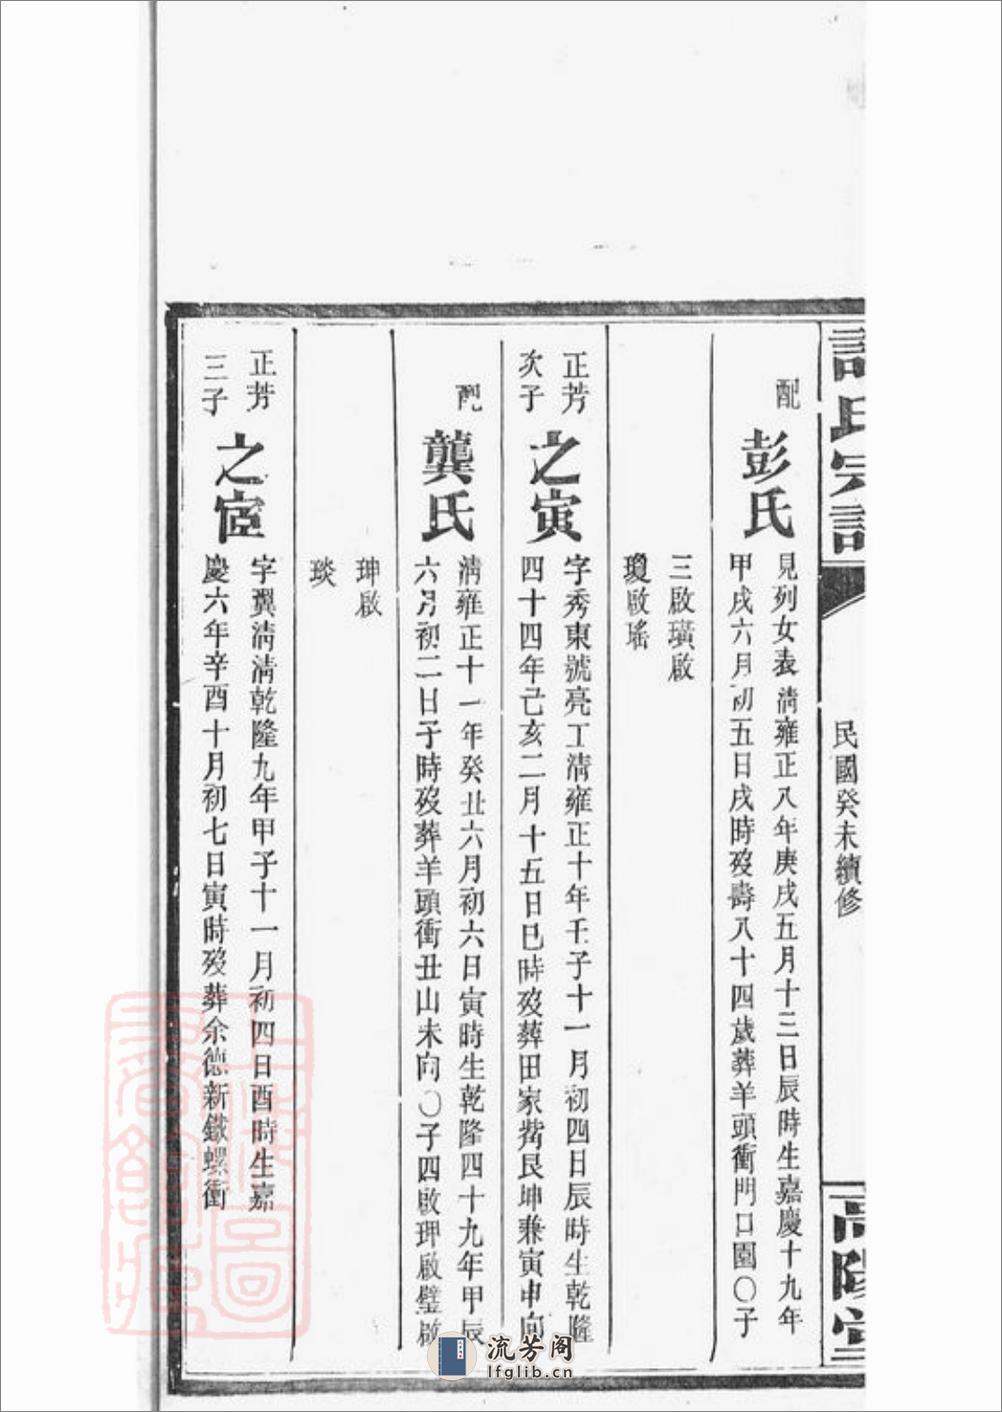 許氏宗譜
民國癸未續修
高陽堂
配
彭氏
見列女表清雍正八年庚戌五月十三日辰時生嘉慶十九年
甲戌六月初五日戌時歿壽八十四歲葬羊頭衝門口園〇子
三啟璜啟
瓊啟瑤
正芳
次子
之寅
字秀東號亮工清雍正十年壬子十一月初四日辰時生乾隆
四十四年己亥二月十五日巳時歿葬田家觜艮坤兼寅申向
配
龔氏
清雍正十一年癸丑六月初六日寅時生乾隆四十九年甲辰
六月初二日子時歿葬羊頭衝丑山未向〇子四啟玾啟璧啟
珅啟
琰
正芳
三子
之宦
字翼清清乾隆九年甲子十一月初四日酉時生嘉
慶六年辛酉十月初七日寅時歿葬余德新鐵螺衝
流芳阁
lfglib.cn